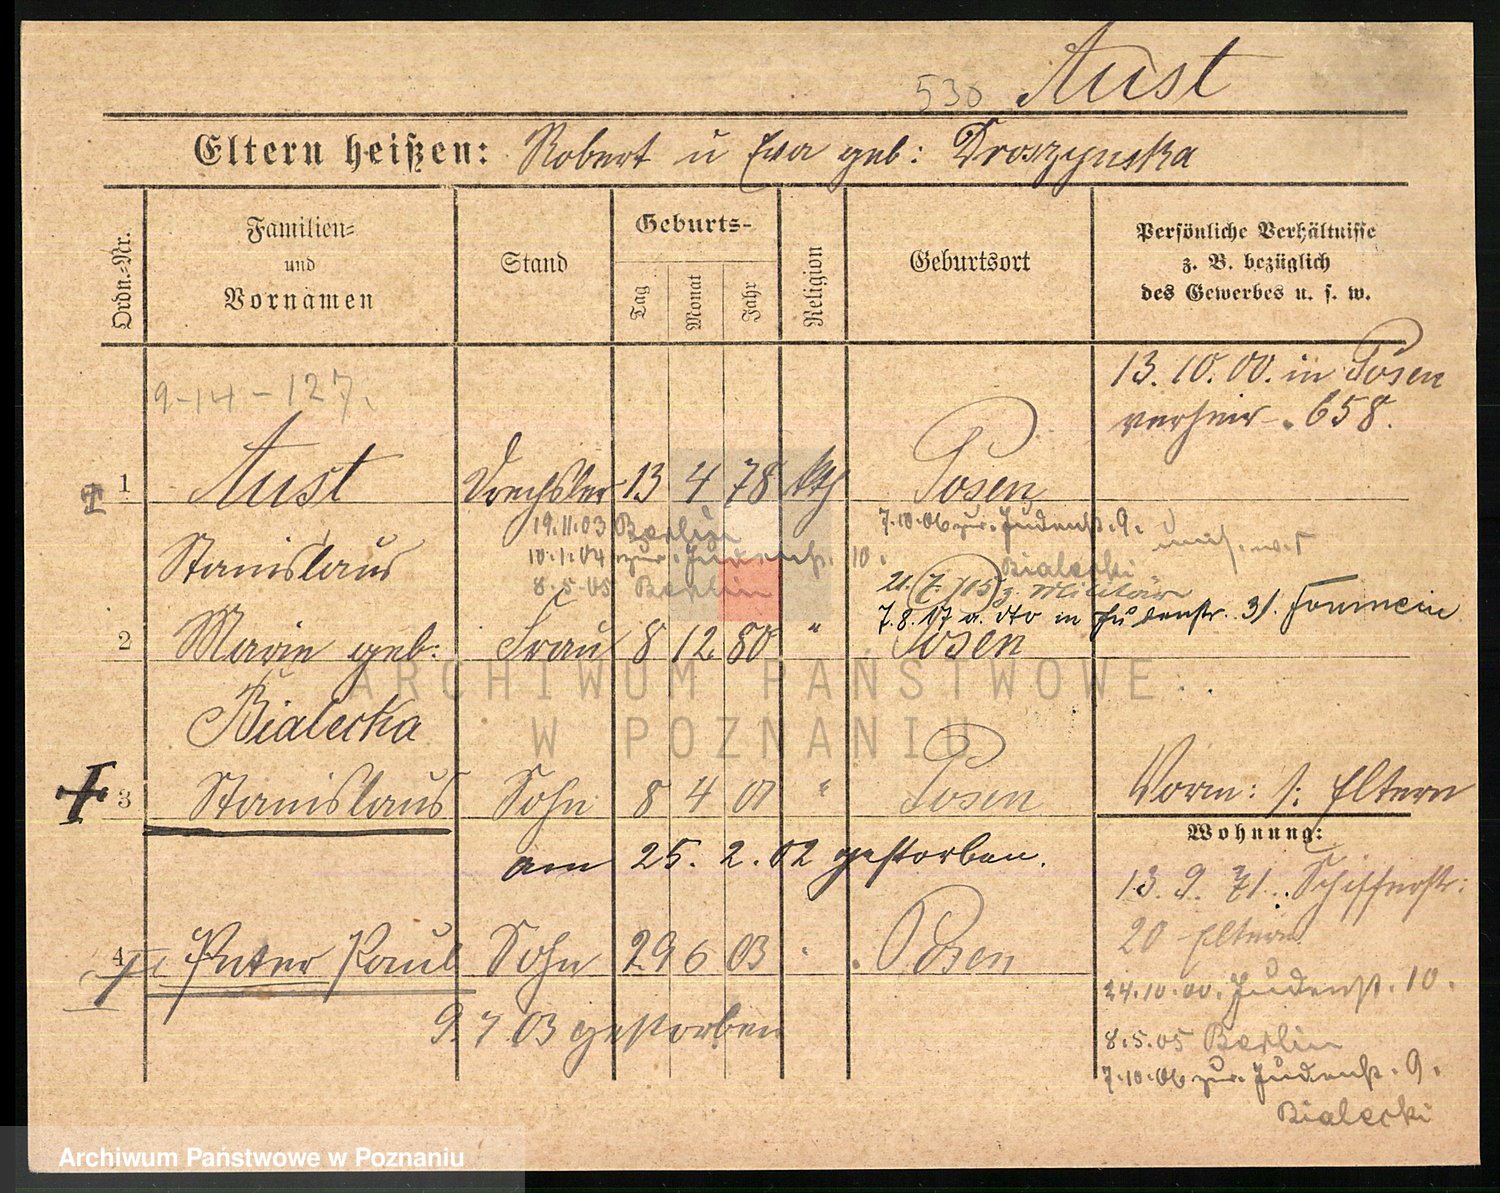 530 Aust
Eltern heißen: Robert u Eva geb: Droszynska
Ordn.-Nr.
Familien- und Vornamen
Stand
Geburts-
Tag Monat Jahr
Religion
Geburtsort
Persönliche Verhältnisse
z. B. bezüglich
des Gewerbes u. s. w.
9-14-127.
13.10.00. in Posen
verheir. 658.
1 Aust Drechsler 13 4 78 kth Posen
19.11.03 Berlin
7.10.06 zur. Judenstr. 9.
Stanislaus
10.1.04 zur. Judenstr. 10.
Bialecki
8.5.05 Berlin
z. Militär
7.8.07 a. dto in Judenstr. 31.
2 Marie geb. Frau 8 12 80 " Posen
Bialecka
3 Stanislaus Sohn 8 4 01 " Posen
Vorm: s: Eltern
am 25. 2. 02 gestorben.
Wohnung:
13. 9. 71. Schifferstr:
20 Eltern
4 Peter Paul Sohn 29 6 03 Posen
24.10.00. Judenstr. 10.
9. 7. 03 gestorben
8.5.05 Berlin
7.10.06 zur. Judenstr. 9.
Bialecki
ARCHIWUM PAŃSTWOWE
W POZNANIU
Archiwum Państwowe w Poznaniu